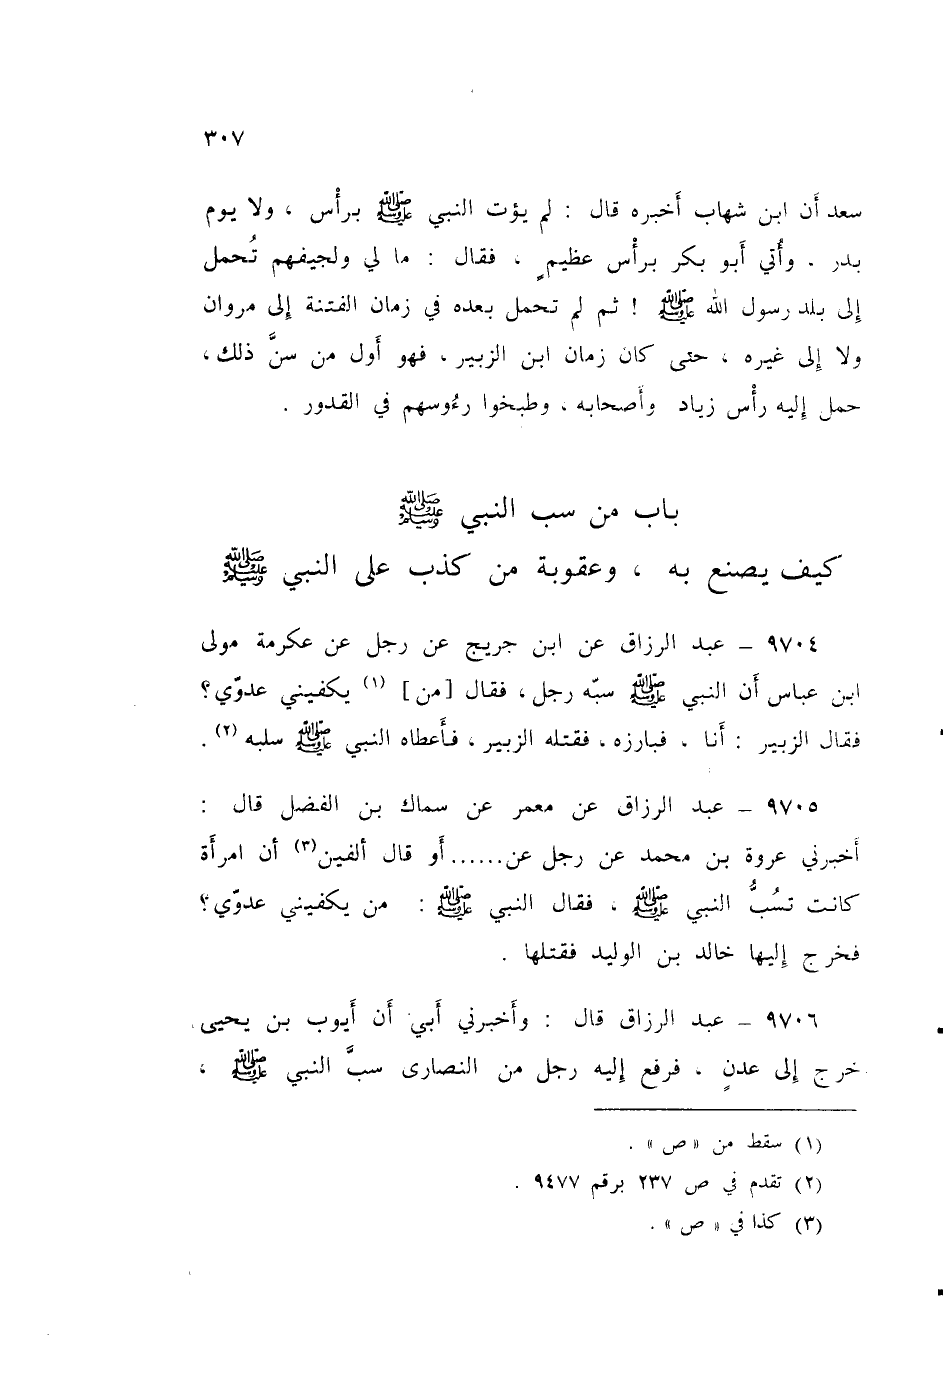 ٣٠٧
سعد أَن ابن شهاب أَخبره قال : لم يؤت النبي ﷺ برأْس ، ولا يوم
بدر . وأُتي أَبو بكر برأْس عظيمٍ ، فقال : ما لي ولجيفهم تُحمل
إِلى بلد رسول الله ﷺ ! ثم لم تحمل بعده في زمان الفتنة إِلى مروان
ولا إِلى غيره ، حتى كان زمان ابن الزبير ، فهو أَول من سنَّ ذلك ،
حمل إِليه رأْس زياد وأَصحابه ، وطبخوا رءُوسهم في القدور .
باب من سب النبي ﷺ
كيف يصنع به ، وعقوبة من كذب على النبي ﷺ
٩٧٠٤ – عبد الرزاق عن ابن جريج عن رجل عن عكرمة مولى
ابن عباس أَن النبي ﷺ سبّه رجل ، فقال [من] (١) يكفيني عدوّي؟
فقال الزبير : أَنا . فبارزه ، فقتله الزبير ، فأَعطاه النبي ﷺ سلبه (٢) .
٩٧٠٥ – عبد الرزاق عن معمر عن سماك بن الفضل قال :
أَخبرني عروة بن محمد عن رجل عن......أَو قال ألفين(٣) أن امرأَة
كانت تسُبُّ النبي ﷺ ، فقال النبي ﷺ : من يكفيني عدوّي؟
فخرج إِليها خالد بن الوليد فقتلها .
٩٧٠٦ – عبد الرزاق قال : وأَخبرني أَبي أَن أَيوب بن يحيى
خرج إِلى عدنٍ ، فرفع إِليه رجل من النصارى سبَّ النبي ﷺ ،
(١) سقط من « ص » .
(٢) تقدم في ص ٢٣٧ برقم ٩٤٧٧ .
(٣) كذا في « ص » .